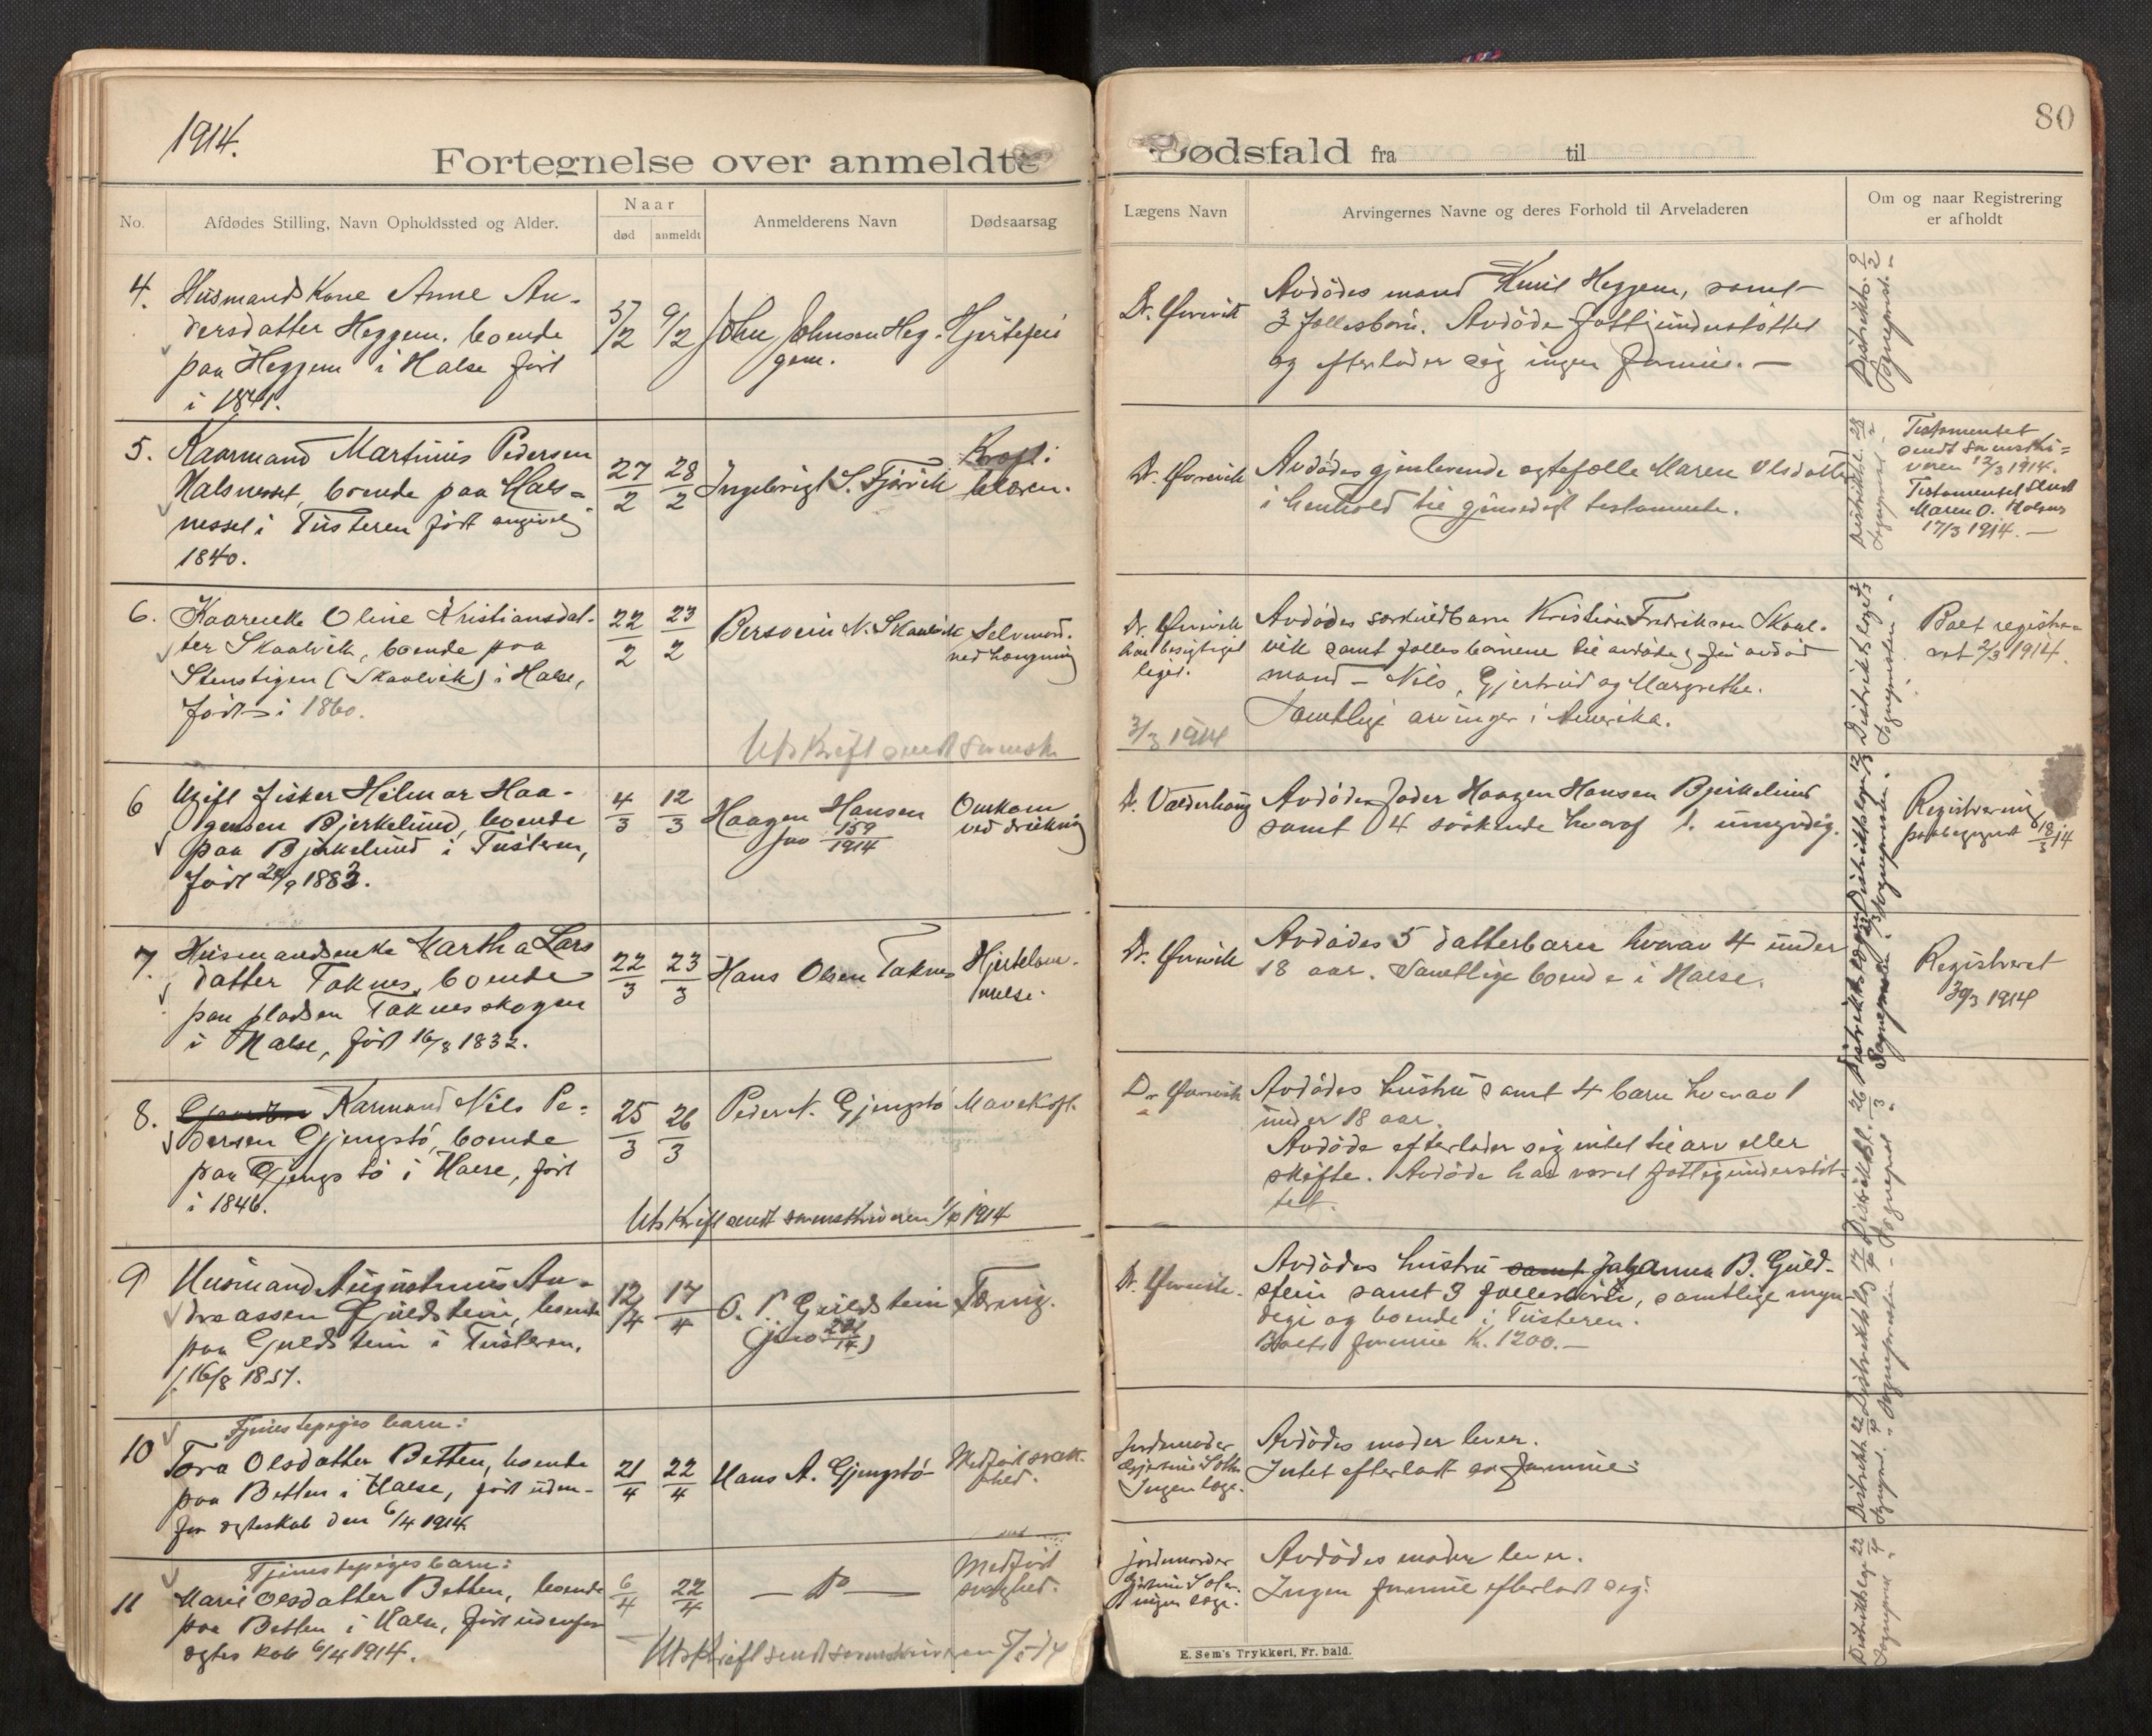 1914.
80
Fortegnelse over anmeldte
Dødsfald fra til
No.
Afdødes Stilling, Navn Opholdssted og Alder.
Naar
død anmeldt
Anmelderens Navn
Dødsaarsag
Lægens Navn
Arvingernes Navne og deres Forhold til Arveladeren
Om og naar Registrering
er afholdt
4.
Husmandskone Anne An-
dersdatter Heggem, boende
paa Heggem i Halse født
i 1841.
5/2 9/2
John Johnsen Heg-
gem.
Hjertefeil
Avdødes mand Knut Heggem, samt
3 fællesbørn. Avdøde fattigunderstøttet
og efterlader sig ingen formue. —
5.
Kaarmand Martinus Pedersen
Halsnesset, boende paa Hals-
nesset i Tusteren født angivelig
1840.
27/2 28/2
Ingebrigt S. Fjørvik
Kræft i
blæren.
Avdødes gjenlevende egtefælle Maren Olsdatter
i henhold til gjensidigt testamente.
Testamentet
sendt sorenskri-
veren 12/3 1914.
Testamentet sendt
Maren O.
17/3 1914. —
6.
Kaarenke Oline Kristiansdat-
ter Skaalvik, boende paa
Stenstigen (Skaalvik) i Halse,
født i 1860.
22/2 23/2
Bersvein N. Skaalvik
Selvmord
ved hængning
har besigtiget
liget.
Avdødes særkuldbarn Kristian Fredriksen Skaal-
vik samt fællesbørnene til avdøde og før avdød
mand — Nils, Gjertrud og Margrethe.
Samtlige arvinger i Amerika.
Boet registre-
ret 2/3 1914.
Utskrift sendt sorensk.
3/3 1914
6
Ugift fisker Hilmar Haa-
gensen Bjerkelund, boende
paa Bjerkelund i Tusteren,
født 24/9 1883.
4/3 12/3
Haagen Hansen
jno 159/1914
Omkom
ved drukning
Dr. Valderhaug
Avdødes fader Haagen Hansen Bjerkelund
samt 4 søskende hvoraf 1. umyndig.
Registrering
paabegyndt 18/3 14
7.
Husmandsenke Martha Lars
datter Taknes, boende
paa pladsen Taknesskogen
i Halse, født 16/8 1832.
22/3 23/3
Hans Olsen Taknes
Hjertelam-
melse.
Avdødes 5 datterbarn hvorav 4 under
18 aar. Samtlige boende i Halse.
Registreret
30/3 1914
8.
Karmand Nils Pe-
dersen Gjengstø, boende
paa Gjengstø i Halse, født
i 1846.
25/3 26/3
Peder N. Gjengstø
Mavekræft.
Avdødes hustru samt 4 barn hvorav 1
under 18 aar.
Avdøde efterlader sig intet til arv eller
skifte. Avdøde har været fattigunderstøt-
tet.
Utskrift sendt sorenskriveren 1/4 1914
9
Husmand Augustinus An-
dreassen Guldstein, boende
paa Guldstein i Tusteren,
f. 16/8 1857.
12/4 17/4
O. P. Guldstein
Tæring.
Avdødes hustru samt Johanna B. Guld-
stein samt 3 fællesbørn, samtlige myn-
dige og boende i Tusteren.
Boets formue Kr. 1200.—
10
Tjenestepiges barn:
Tora Olsdatter Betten, boende
paa Betten i Halse, født uden-
for egteskab den 6/4 1914.
21/4 22/4
Hans A. Gjengstø
Medfødt svak-
hed.
Jordmoder
Ingen læge.
Avdødes moder lever.
Intet efterladt av formue.
11
Tjenestepiges barn:
Marie Olsdatter Betten, boende
paa Betten i Halse, født udenfor
egteskab 6/4 1914.
6/4 22/4
— do —
Medfødt
svaghed.
jordmoder
ingen læge.
Avdødes moder lever.
Ingen formue efterladt sig.
Utskrift sendt sorenskriveren
E. Sem's Trykkeri, Fr. hald.